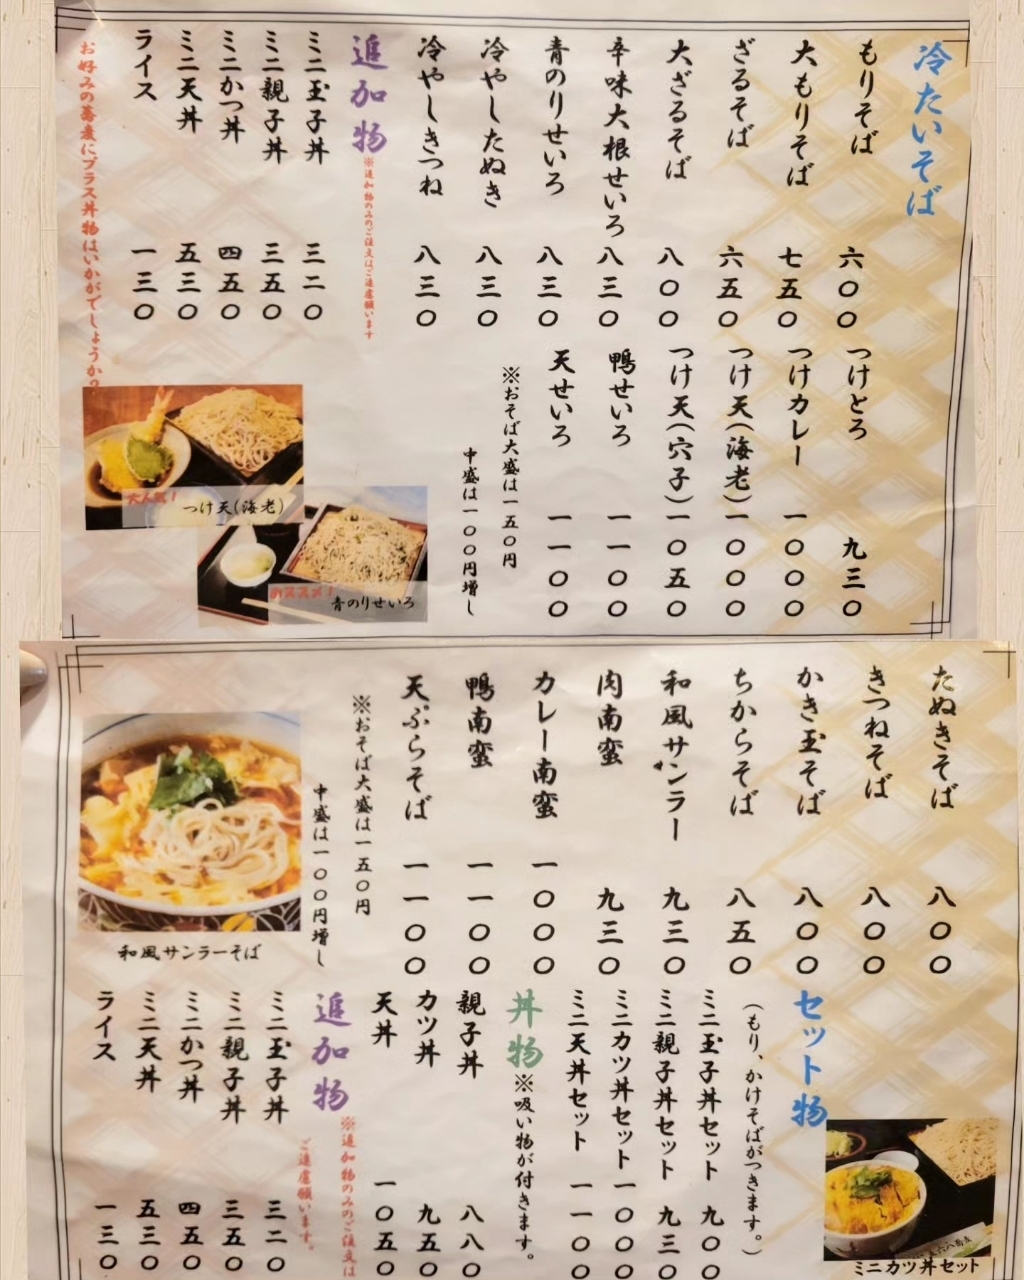 冷たいそば
もりそば 六〇〇
大もりそば 七五〇
ざるそば 六五〇
大ざるそば 八〇〇
辛味大根せいろ 八三〇
青のりせいろ 八三〇
冷やしたぬき 八三〇
冷やしきつね 八三〇
つけとろ 九三〇
つけカレー 一〇〇〇
つけ天(海老) 一〇〇〇
つけ天(穴子) 一〇五〇
鴨せいろ 一一〇〇
天せいろ 一一〇〇
※おそば大盛は一五〇円
中盛は一〇〇円増し
追加物
※追加物のみのご注文はご遠慮願います
ミニ玉子丼 三二〇
ミニ親子丼 三五〇
ミニかつ丼 四五〇
ミニ天丼 五三〇
ライス 一三〇
お好みの蕎麦にプラス丼物はいかがでしょうか?
大人気!
つけ天(海老)
おススメ!
青のりせいろ
たぬきそば 八〇〇
きつねそば 八〇〇
かき玉そば 八〇〇
ちからそば 八五〇
和風サンラー 九三〇
肉南蛮 九三〇
カレー南蛮 一〇〇〇
鴨南蛮 一一〇〇
天ぷらそば 一一〇〇
※おそば大盛は一五〇円
中盛は一〇〇円増し
和風サンラーそば
セット物
(もり、かけそばがつきます。)
ミニ玉子丼セット 九〇〇
ミニ親子丼セット 九三〇
ミニカツ丼セット 一〇〇〇
ミニ天丼セット 一一〇〇
ミニカツ丼セット
丼物
※吸い物が付きます。
親子丼 八八〇
カツ丼 九五〇
天丼 一〇五〇
追加物
※追加物のみのご注文は
ご遠慮願います。
ミニ玉子丼 三二〇
ミニ親子丼 三五〇
ミニかつ丼 四五〇
ミニ天丼 五三〇
ライス 一三〇